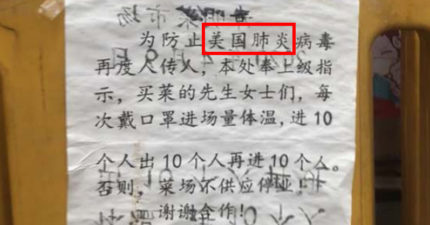 为防止美国肺炎病毒
再度人传人，本处奉上级指
示，买菜的先生女士们，每
次戴口罩进场量体温，进10
个人出10个人再进10个人。
否则，菜场不供应停业！
谢谢合作！